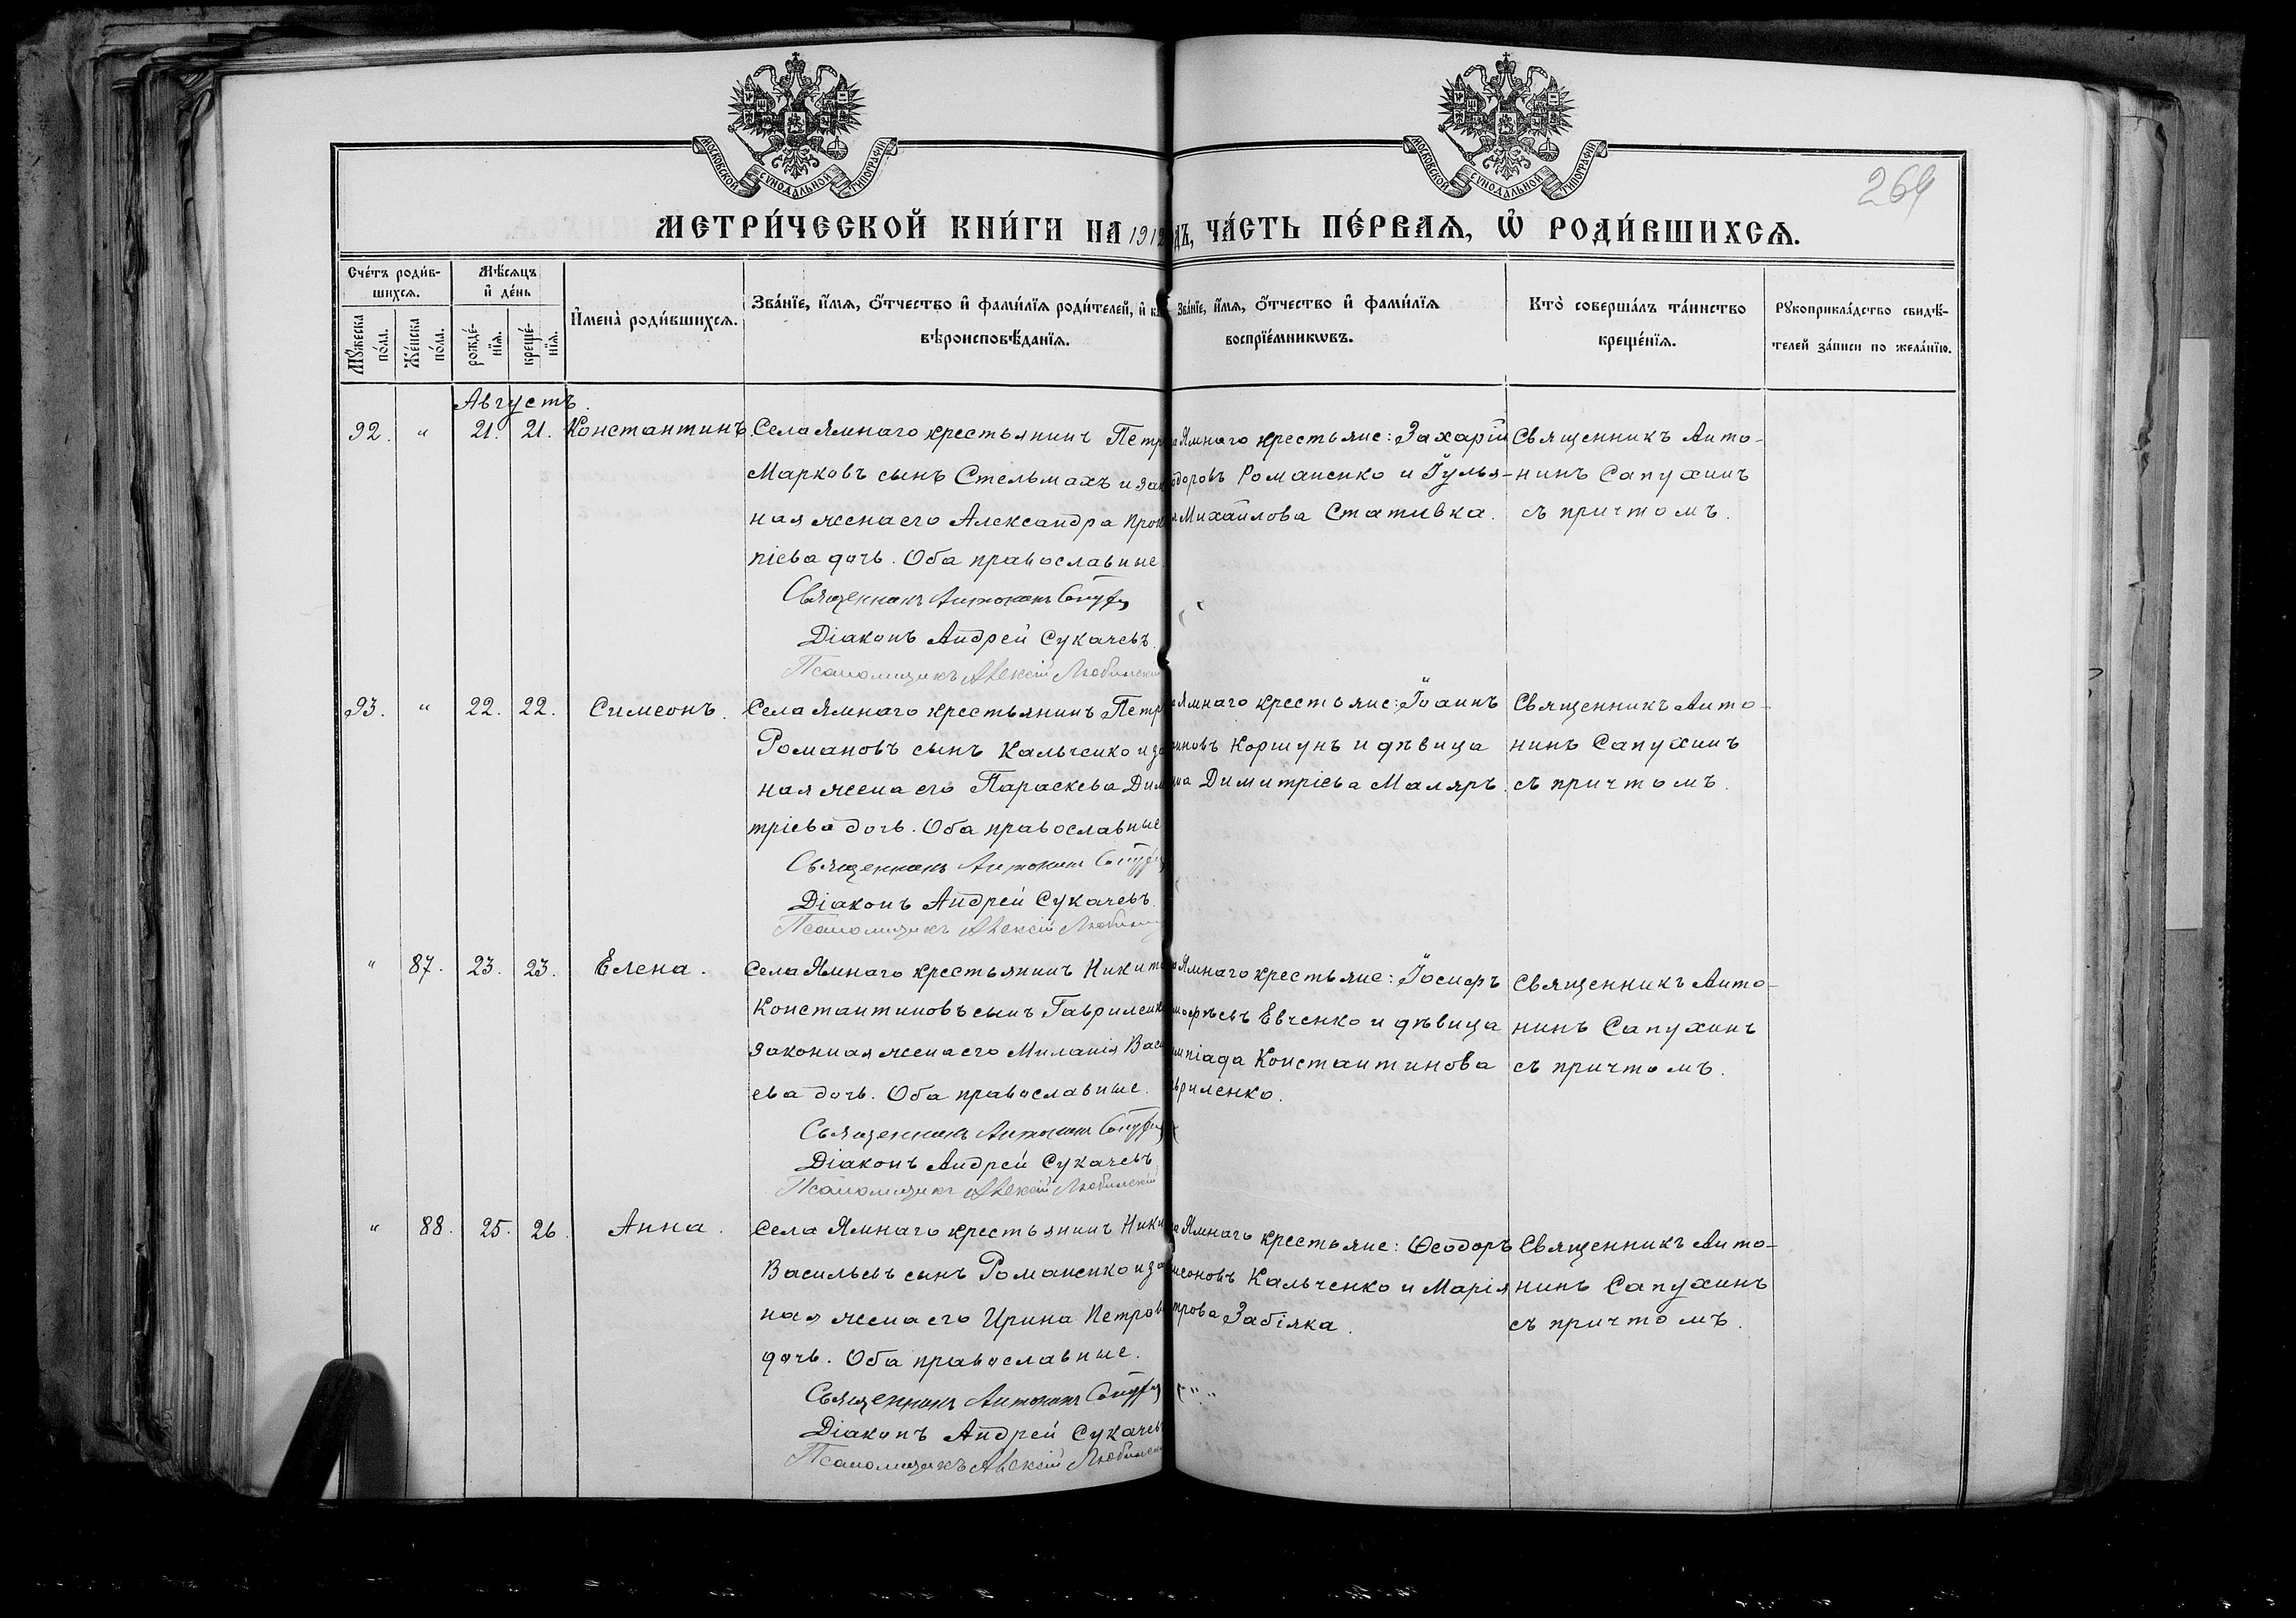 МОСКОВСКОЙ СУНОДАЛЬНОЙ ТИПОГРАФІИ
МОСКОВСКОЙ СУНОДАЛЬНОЙ ТИПОГРАФІИ
264
МЕТРИ́ЧЕСКОЙ КНИ́ГИ НА 1912 ДЪ, ЧА́СТЬ ПЕ́РВАЯ, Ѡ҆ РОДИ́ВШИХСЯ.
Сче́тъ роди́в-
шихся.
Мꙋ́жеска по́ла.
Же́нска по́ла.
Мѣ́сяцъ
и҆ де́нь
рожде́-
нїя.
креще́-
нїя.
И҆мена̀ роди́вшихся.
Зва́нїе, и҆́мя, ѻ҆́тчество и҆ фами́лїя роди́телей, и҆ к
вѣроисповѣ́данїя.
Зва́нїе, и҆́мя, ѻ҆́тчество и҆ фами́лїя
воспрїе́мникѡвъ.
Кто̀ соверша́лъ та́инство
креще́нїя.
Рꙋкоприкла́дство свидѣ́-
телей за́писи по жела́нїю.
Августъ.
92. " 21. 21. Константинъ.
Села Ямнаго крестьянинъ Петр
Марковъ сынъ Стельмахъ и зак
ная жена его Александра Прок
піева дочь. Оба православные
Священникъ Антонинъ Сапух
Діаконъ Андрей Сукачевъ.
Псаломщикъ Алексій Любинскій
Ямнаго крестьяне: Захарій
одоровъ Романенко и Гулья-
Михайлова Стативка.
Священникъ Анто-
нинъ Сапухинъ
съ причтомъ.
93. " 22. 22. Симеонъ.
Села Ямнаго крестьянинъ Петр
Романовъ сынъ Кальченко и за
ная жена его Параскева Дим
тріева дочь. Оба православные
Священникъ Антонинъ Сапух
Діаконъ Андрей Сукачевъ.
Псаломщикъ Алексій Любинс
Ямнаго крестьяне: Іоаннъ
иновъ Коршунъ и дѣвица
на Димитріева Маляръ.
Священникъ Анто-
нинъ Сапухинъ
съ причтомъ.
" 87. 23. 23. Елена.
Села Ямнаго крестьянинъ Никита
Константиновъ сынъ Гавриленко
законная жена его Миланія Васи
ева дочь. Оба православные.
Священникъ Антонинъ Сапухи
Діаконъ Андрей Сукачевъ
Псаломщикъ Алексій Любинскій
Ямнаго крестьяне: Іосифъ
моѳѣевъ Евченко и дѣвица
мпіада Константинова
вриленко.
Священникъ Анто-
нинъ Сапухинъ
съ причтомъ.
" 88. 25. 26. Анна.
Села Ямнаго крестьянинъ Ники
Васильевъ сынъ Романенко и за
ная жена его Ирина Петрова
дочь. Оба православные.
Священникъ Антонинъ Сапух
Діаконъ Андрей Сукачевъ
Псаломщикъ Алексій Любинск
Ямнаго крестьяне: Ѳеодоръ
меоновъ Кальченко и Марія
трова Забіяка.
Священникъ Анто-
нинъ Сапухинъ
съ причтомъ.